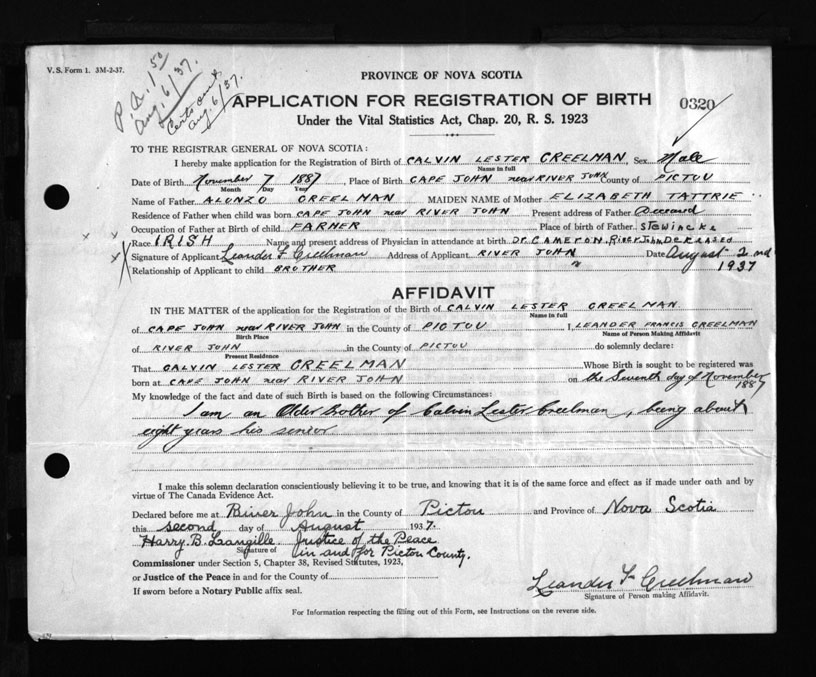 V. S. Form 1. 3M-2-37.
P.A. 1 50
Aug. 6/37.
Aug. 6/37.
PROVINCE OF NOVA SCOTIA
APPLICATION FOR REGISTRATION OF BIRTH
0320
Under the Vital Statistics Act, Chap. 20, R. S. 1923
TO THE REGISTRAR GENERAL OF NOVA SCOTIA:
I hereby make application for the Registration of Birth of CALVIN LESTER CREELMAN, Sex Male
Name in full
Date of Birth November 7 1887, Place of Birth CAPE JOHN near RIVER JOHN County of PICTOU
Month Day Year
Name of Father ALONZO CREELMAN MAIDEN NAME of Mother ELIZABETH TATTRIE
Residence of Father when child was born CAPE JOHN near RIVER JOHN Present address of Father Deceased
Occupation of Father at Birth of child FARMER Place of birth of Father STEWIACKE
Race IRISH Name and present address of Physician in attendance at birth DR. CAMERON. River John DECEASED
Signature of Applicant Leander F Creelman Address of Applicant RIVER JOHN Date August 2nd
1937
Relationship of Applicant to child BROTHER
AFFIDAVIT
IN THE MATTER of the application for the Registration of the Birth of CALVIN LESTER CREELMAN
Name in full
of CAPE JOHN near RIVER JOHN in the County of PICTOU I, LEANDER FRANCIS CREELMAN
Birth Place Name of Person Making Affidavit
of RIVER JOHN in the County of PICTOU do solemnly declare:
Present Residence
That CALVIN LESTER CREELMAN Whose Birth is sought to be registered was
born at CAPE JOHN near RIVER JOHN on the Seventh day of November
1887
My knowledge of the fact and date of such Birth is based on the following Circumstances:
I am an Older brother of Calvin Lester Creelman, being about
eight years his senior
I make this solemn declaration conscientiously believing it to be true, and knowing that it is of the same force and effect as if made under oath and by
virtue of The Canada Evidence Act.
Declared before me at River John in the County of Pictou and Province of Nova Scotia
this second day of August 1937.
Harry B. Langille Justice of the Peace
Signature of in and for Pictou County.
Commissioner under Section 5, Chapter 38, Revised Statutes, 1923,
or Justice of the Peace in and for the County of
Leander F Creelman
Signature of Person making Affidavit.
If sworn before a Notary Public affix seal.
For Information respecting the filling out of this Form, see Instructions on the reverse side.